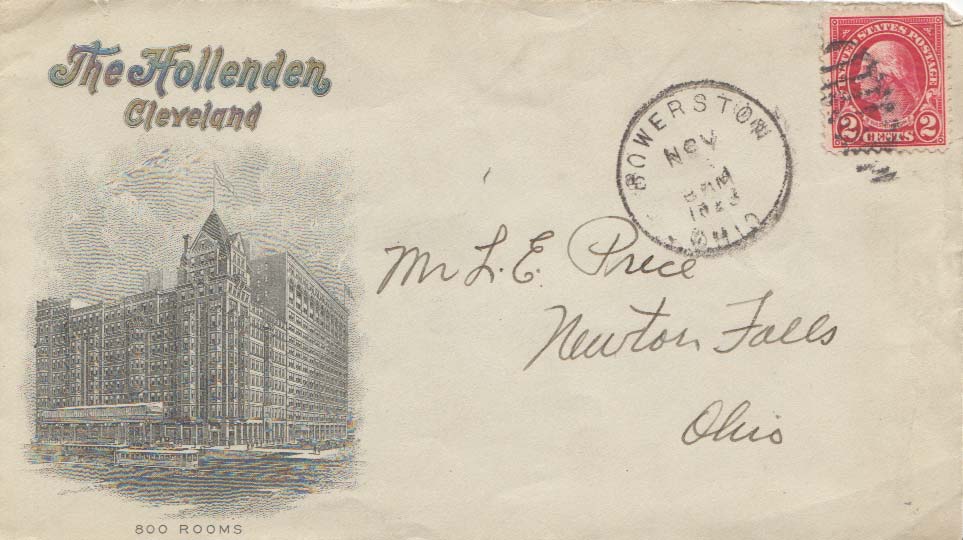 The Hollenden
Cleveland
800 ROOMS
BOWERSTON
NOV
PM
OHIO
UNITED STATES POSTAGE
2 CENTS 2
Mr L. E. Price
Newton Falls
Ohio